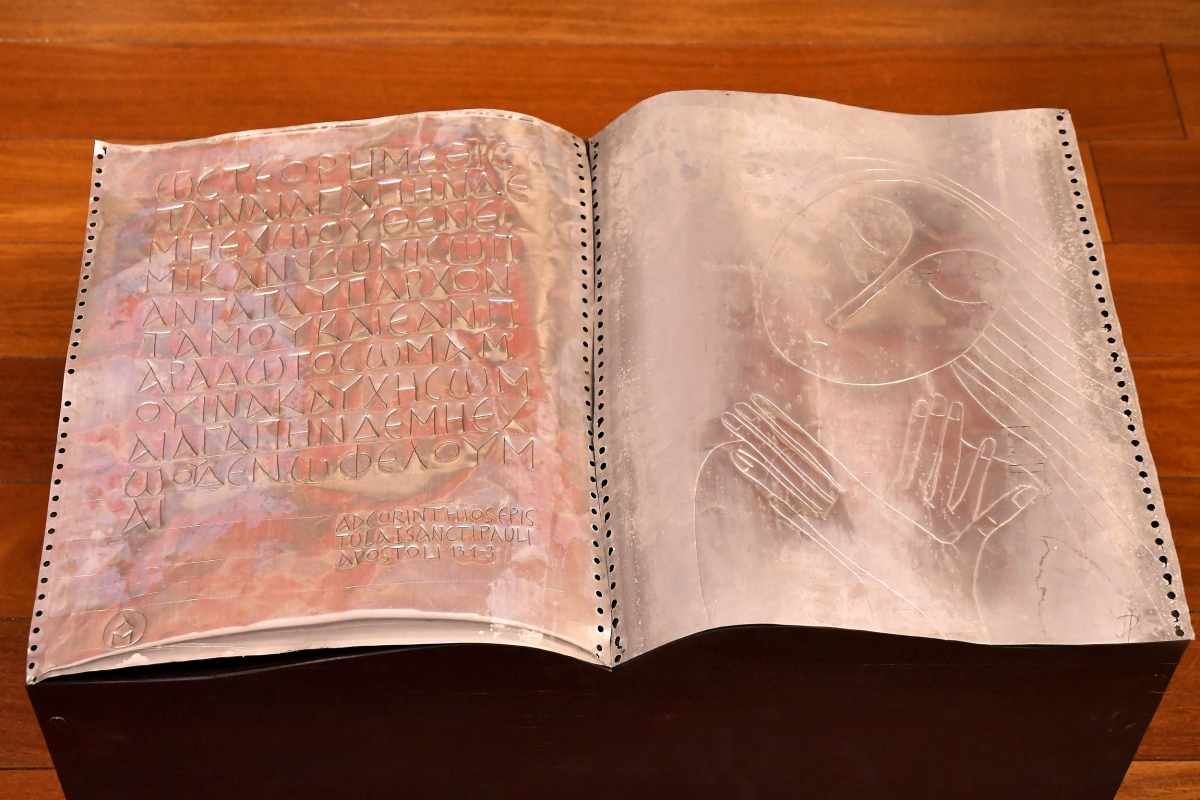 ωϲΤΕΟΡΗΜΕΘΙϲ
ΤΑΝΑΙΑΓΑΠΗΝΔΕ
ΜΗΕΧωΟΥΘΕΝΕΙ
ΜΙΚΑΝΨωΜΙϲωΠ
ΑΝΤΑΤΑΥΠΑΡΧΟΝ
ΤΑΜΟΥΚΑΙΕΑΝΠ
ΑΡΑΔωΤΟϲωΜΑΜ
ΟΥΙΝΑΚΑΥΧΗϲωΜ
ΑΙΑΓΑΠΗΝΔΕΜΗΕΧ
ωΟΥΔΕΝωΦΕΛΟΥΜ
ΑΙ
AD CORINTHIOS EPIS
TULA I SANCTI PAULI
APOSTOLI 13.1-3